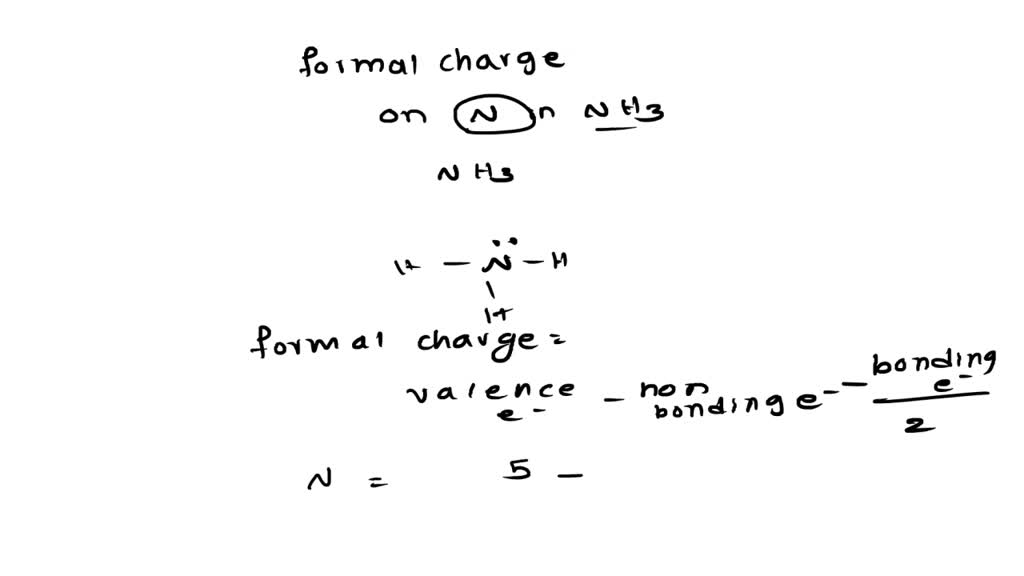 formal charge
on N n NH3
NH3
H - N̈ - H
|
H
formal charge =
valence e- - non bonding e- - bonding e- / 2
N = 5 -